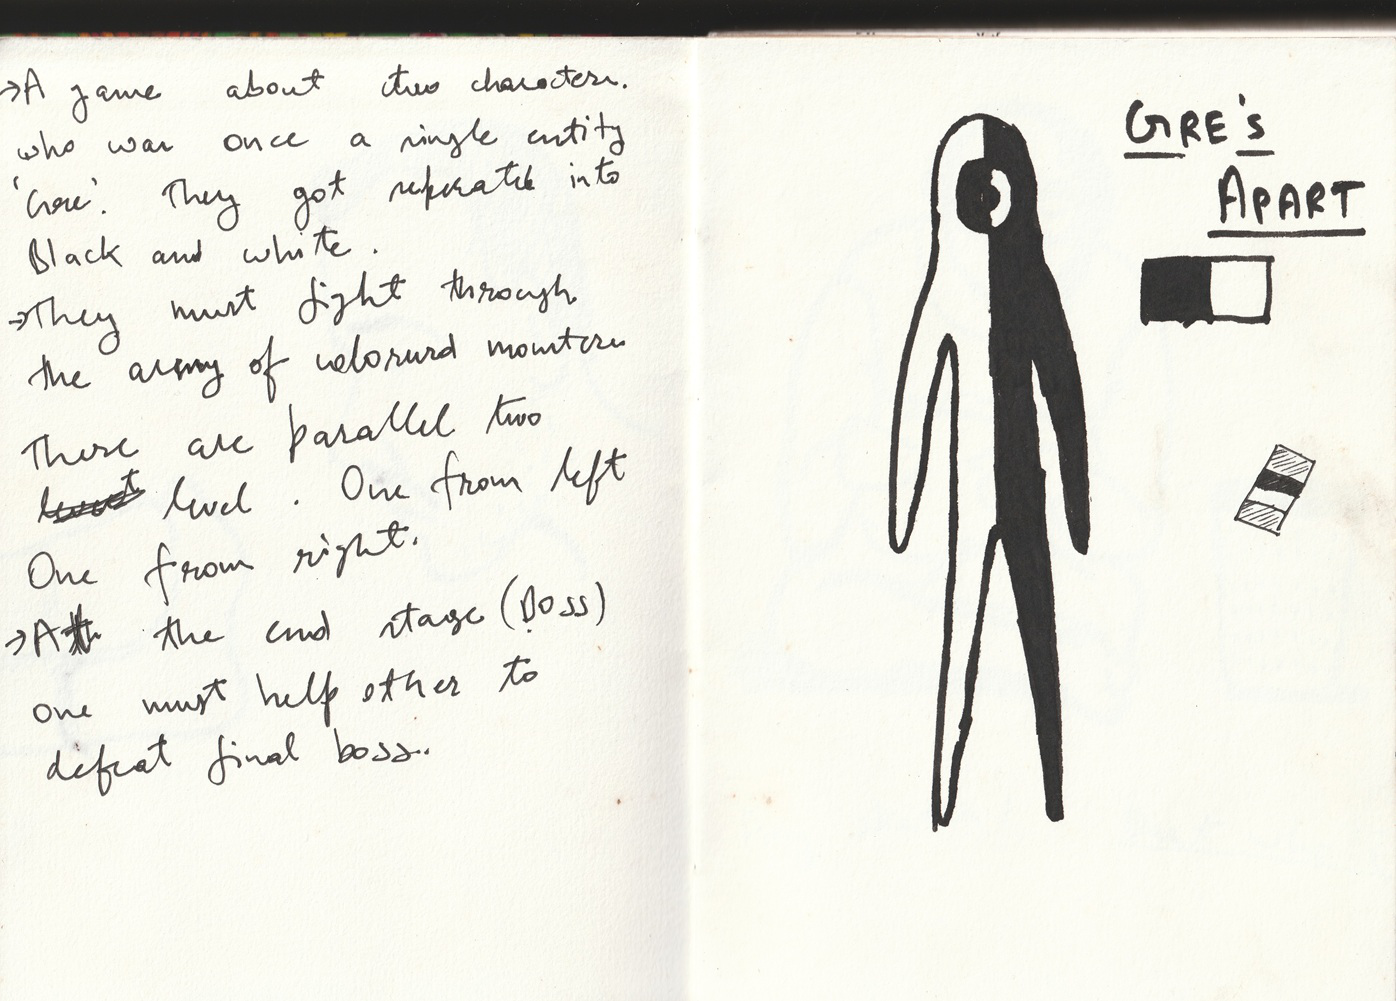 →A game about two characters.
who was once a single entity
'Gre'. They got seperated into
Black and white.
→They must fight through
the army of coloured monsters
There are parallel two
level. One from left
One from right.
→At the end stage (Boss)
one must help other to
defeat final boss..
GRE's
APART